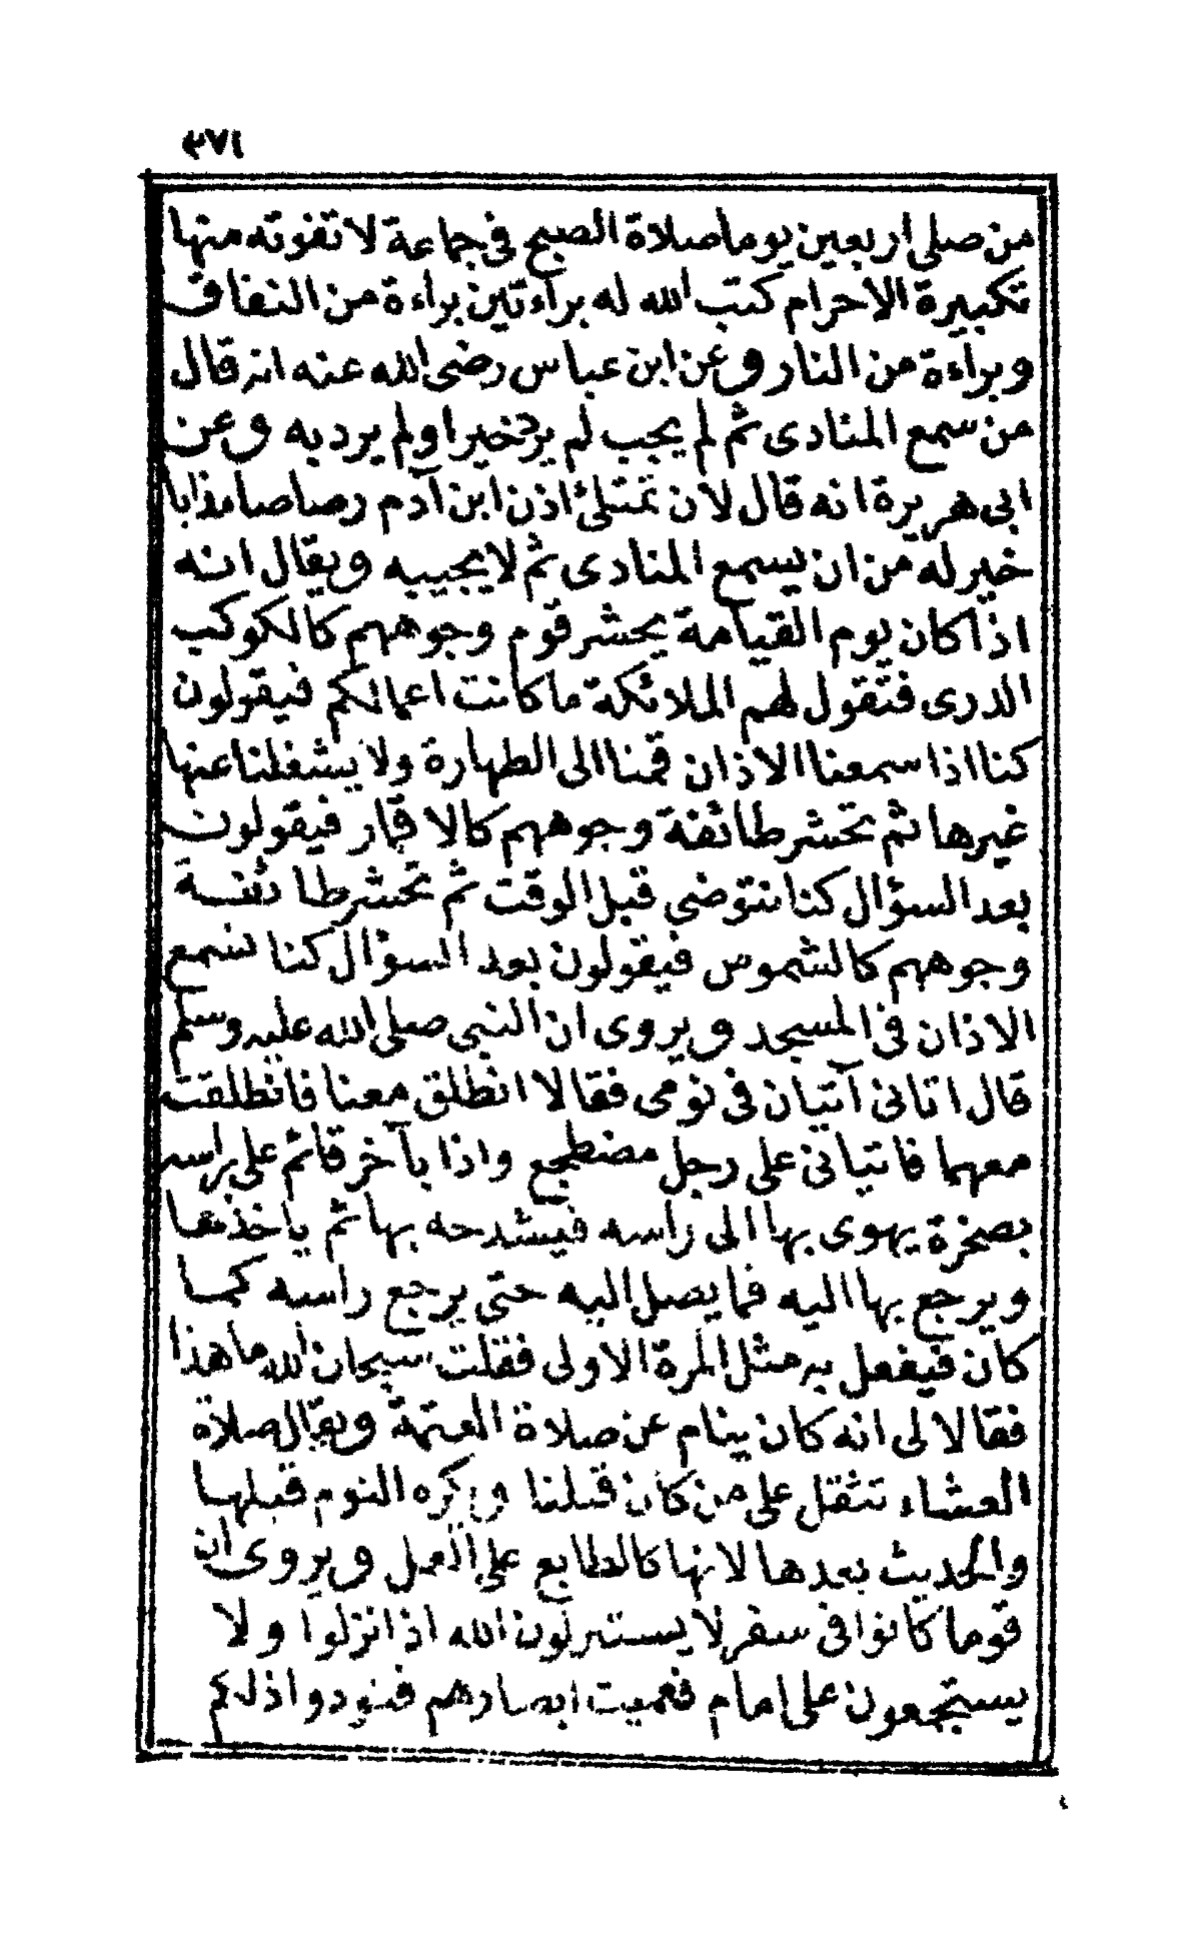 ٣٧٤
من صلى اربعين يوما صلاة الصبح فى جماعة لا تفوته منها
تكبيرة الاحرام كتب الله له براءتين براءة من النفاق
وبراءة من النار وعن ابن عباس رضى الله عنه انه قال
من سمع المنادى ثم لم يجب لم يرد خيرا ولم يرد به وعن
ابى هريرة انه قال لان تمتلئ اذن ابن آدم رصاصا مذابا
خير له من ان يسمع المنادى ثم لا يجيبه ويقال انه
اذا كان يوم القيامة يحشر قوم وجوههم كالكوكب
الدرى فتقول لهم الملائكة ما كانت اعمالكم فيقولون
كنا اذا سمعنا الاذان قمنا الى الطهارة ولا يشغلنا عنها
غيرها ثم تحشر طائفة وجوههم كالاقمار فيقولون
بعد السؤال كنا نتوضى قبل الوقت ثم تحشر طائفة
وجوههم كالشموس فيقولون بعد السؤال كنا نسمع
الاذان فى المسجد ويروى ان النبى صلى الله عليه وسلم
قال اتانى آتيان فى نومى فقالا انطلق معنا فانطلقت
معهما فاتيانى على رجل مضطجع واذا بآخر قائم على راسه
بصخرة يهوى بها الى راسه فيشدخه بها ثم ياخذها
ويرجع بها اليه فما يصل اليه حتى يرجع راسه كما
كان فيفعل به مثل المرة الاولى فقلت سبحان الله ما هذا
فقالا لى انه كان ينام عن صلاة العتمة ويقال صلاة
العشاء تثقل على من كان قبلنا ويكره النوم قبلها
والحديث بعدها لانها كالطابع على العمل ويروى ان
قوما كانوا فى سفر لا يستنزلون الله اذا نزلوا ولا
يستجمعون على امام فعميت ابصارهم فنودوا ذلكم